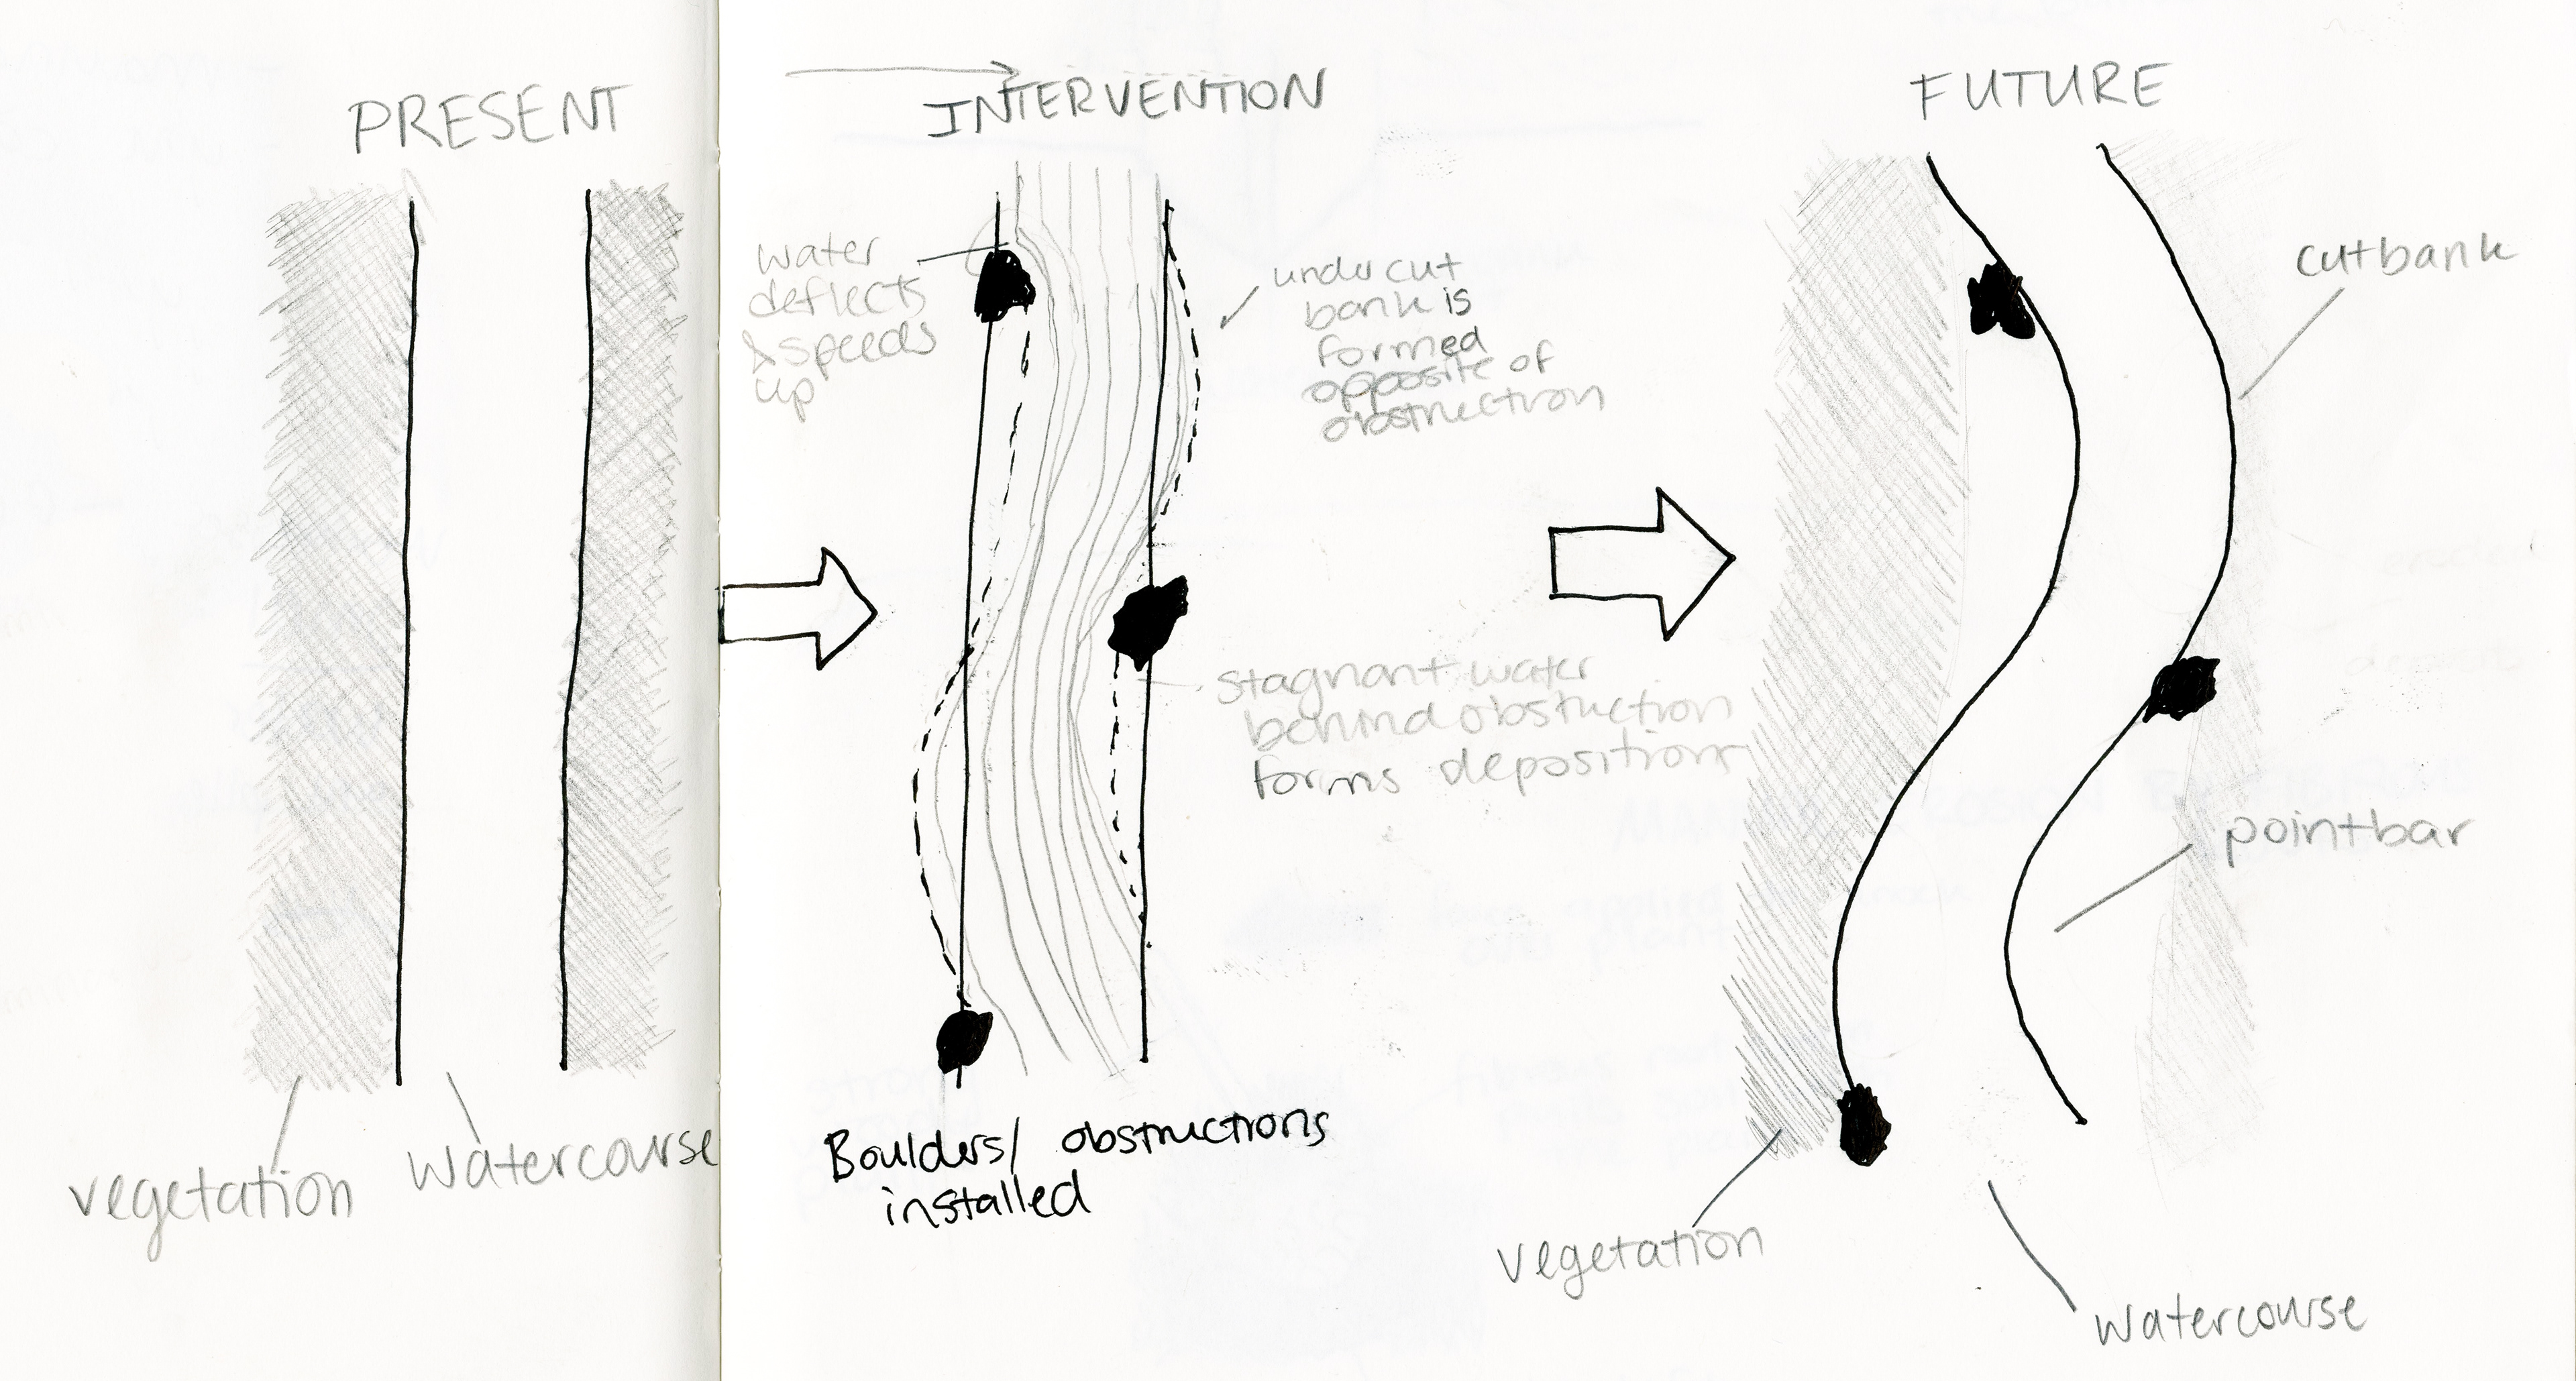 PRESENT
vegetation
watercourse
INTERVENTION
water
deflects
& speeds
up
undercut
bank is
formed
opposite of
obstruction
stagnant water
behind obstuction
forms depositions
Boulders/ obstructions
installed
FUTURE
cutbank
pointbar
vegetation
watercourse